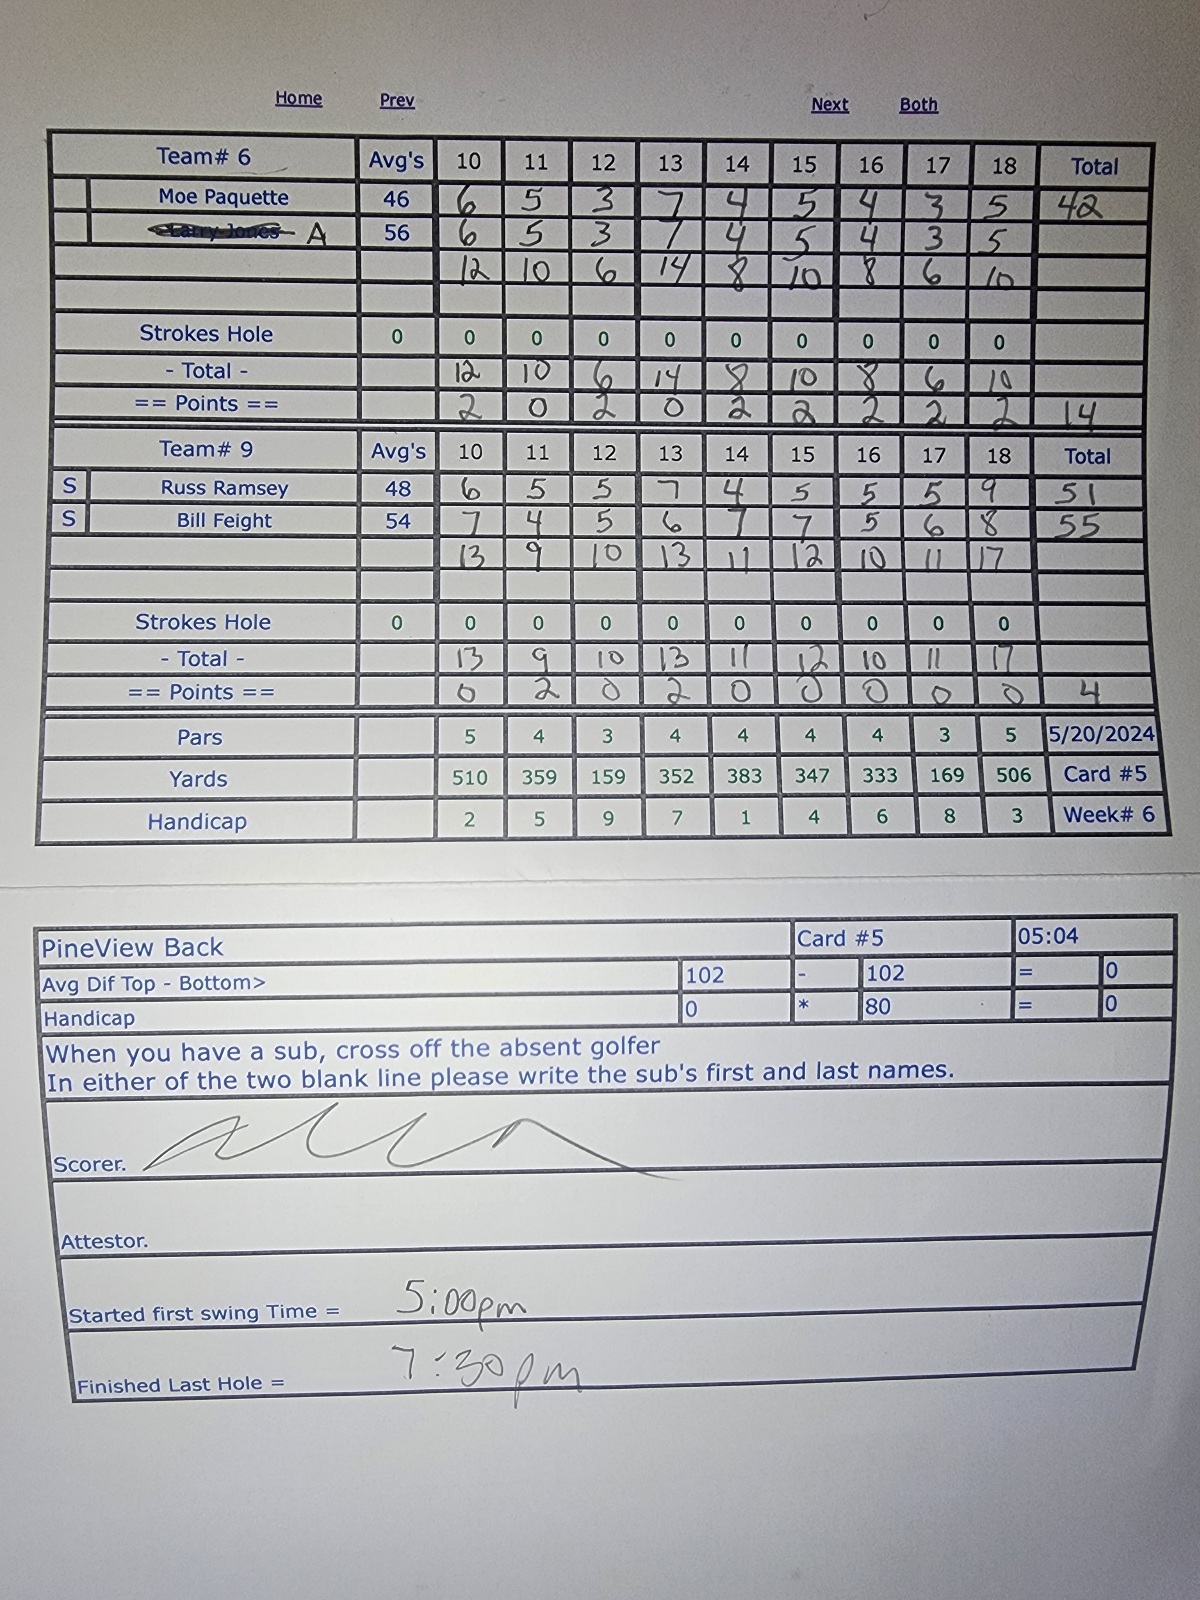 Home Prev Next Both
Team# 6 Avg's 10 11 12 13 14 15 16 17 18 Total
Moe Paquette 46 6 5 3 7 4 5 4 3 5 42
Larry Jones A 56 6 5 3 7 4 5 4 3 5
12 10 6 14 8 10 8 6 10
Strokes Hole 0 0 0 0 0 0 0 0 0 0
- Total - 12 10 6 14 8 10 8 6 10
== Points == 2 0 2 0 2 2 2 2 2 14
Team# 9 Avg's 10 11 12 13 14 15 16 17 18 Total
S Russ Ramsey 48 6 5 5 7 4 5 5 5 9 51
S Bill Feight 54 7 4 5 6 7 7 5 6 8 55
13 9 10 13 11 12 10 11 17
Strokes Hole 0 0 0 0 0 0 0 0 0 0
- Total - 13 9 10 13 11 12 10 11 17
== Points == 0 2 0 2 0 0 0 0 0 4
Pars 5 4 3 4 4 4 4 3 5 5/20/2024
Yards 510 359 159 352 383 347 333 169 506 Card #5
Handicap 2 5 9 7 1 4 6 8 3 Week# 6
PineView Back Card #5 05:04
Avg Dif Top - Bottom> 102 - 102 = 0
Handicap 0 * 80 = 0
When you have a sub, cross off the absent golfer
In either of the two blank line please write the sub's first and last names.
Scorer.
Attestor.
Started first swing Time = 5:00pm
Finished Last Hole = 7:30pm